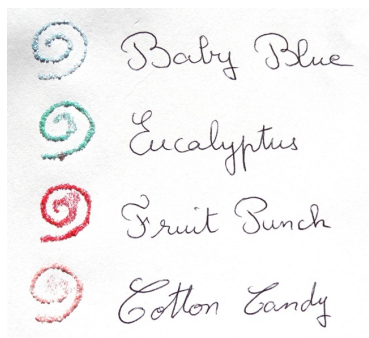 Baby Blue
Eucalyptus
Fruit Punch
Cotton Candy